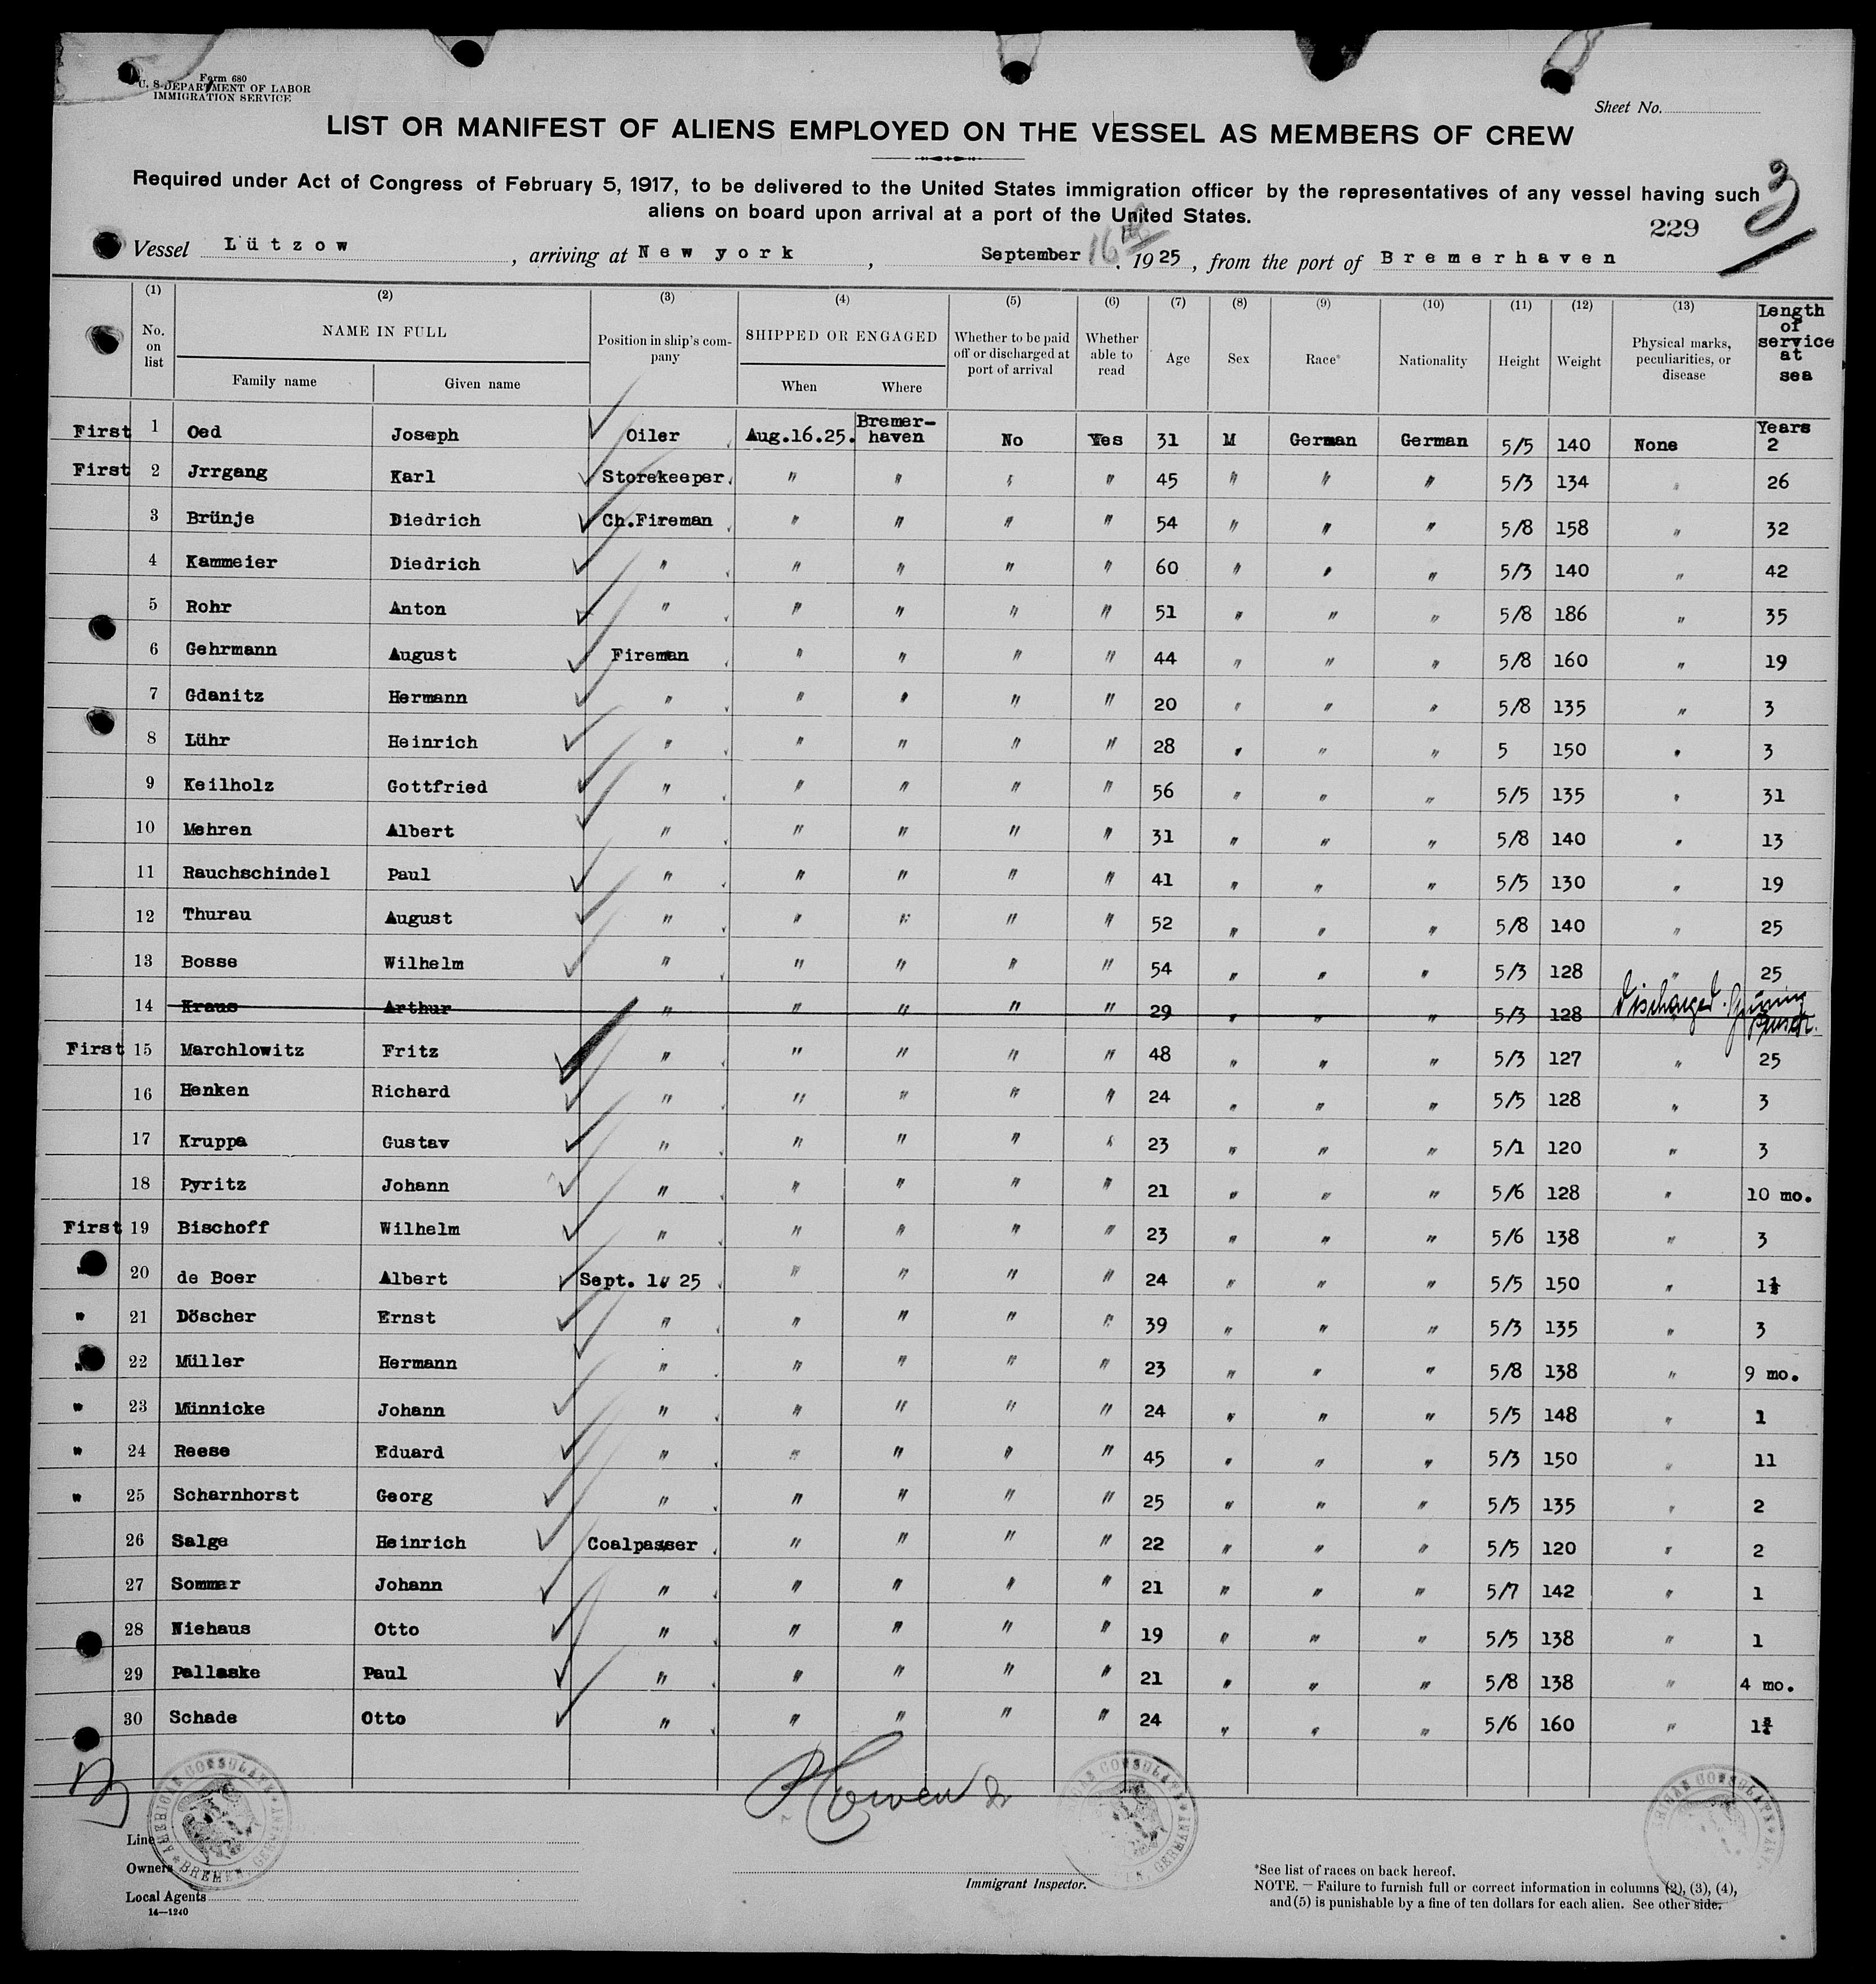 Form 680
U. S. DEPARTMENT OF LABOR
IMMIGRATION SERVICE
Sheet No.
LIST OR MANIFEST OF ALIENS EMPLOYED ON THE VESSEL AS MEMBERS OF CREW
Required under Act of Congress of February 5, 1917, to be delivered to the United States immigration officer by the representatives of any vessel having such
aliens on board upon arrival at a port of the United States.
3
229
Vessel Lützow, arriving at New york, September 16th 1925, from the port of Bremerhaven
(1) (2) (3) (4) (5) (6) (7) (8) (9) (10) (11) (12) (13)
No. on list NAME IN FULL Family name Given name Position in ship's company SHIPPED OR ENGAGED When Where Whether to be paid off or discharged at port of arrival Whether able to read Age Sex Race* Nationality Height Weight Physical marks, peculiarities, or disease Length of service at sea
First 1 Oed Joseph Oiler Aug.16.25. Bremer-haven No Yes 31 M German German 5/5 140 None Years 2
First 2 Jrrgang Karl Storekeeper " " " " 45 " " " 5/3 134 " 26
3 Brünje Diedrich Ch.Fireman " " " " 54 " " " 5/8 158 " 32
4 Kammeier Diedrich " " " " " 60 " " " 5/3 140 " 42
5 Rohr Anton " " " " " 51 " " " 5/8 186 " 35
6 Gehrmann August Fireman " " " " 44 " " " 5/8 160 " 19
7 Gdanitz Hermann " " " " " 20 " " " 5/8 135 " 3
8 Lühr Heinrich " " " " " 28 " " " 5 150 " 3
9 Keilholz Gottfried " " " " " 56 " " " 5/5 135 " 31
10 Mehren Albert " " " " " 31 " " " 5/8 140 " 13
11 Rauchschindel Paul " " " " " 41 " " " 5/5 130 " 19
12 Thurau August " " " " " 52 " " " 5/8 140 " 25
13 Bosse Wilhelm " " " " " 54 " " " 5/3 128 " 25
14 Kraus Arthur " " " " " 29 " " " 5/3 128 " discharged
First 15 Marchlowitz Fritz " " " " " 48 " " " 5/3 127 " 25
16 Henken Richard " " " " " 24 " " " 5/5 128 " 3
17 Kruppa Gustav " " " " " 23 " " " 5/1 120 " 3
18 Pyritz Johann " " " " " 21 " " " 5/6 128 " 10 mo.
First 19 Bischoff Wilhelm " " " " " 23 " " " 5/6 138 " 3
" 20 de Boer Albert Sept. 1 25 " " " " 24 " " " 5/5 150 " 1½
" 21 Döscher Ernst " " " " " 39 " " " 5/3 135 " 3
" 22 Müller Hermann " " " " " 23 " " " 5/8 138 " 9 mo.
" 23 Münnicke Johann " " " " " 24 " " " 5/5 148 " 1
" 24 Reese Eduard " " " " " 45 " " " 5/3 150 " 11
" 25 Scharnhorst Georg " " " " " 25 " " " 5/5 135 " 2
26 Salge Heinrich Coalpasser " " " " 22 " " " 5/5 120 " 2
27 Sommer Johann " " " " " 21 " " " 5/7 142 " 1
28 Niehaus Otto " " " " " 19 " " " 5/5 138 " 1
29 Pallaske Paul " " " " " 21 " " " 5/8 138 " 4 mo.
30 Schade Otto " " " " " 24 " " " 5/6 160 "
AMERICAN CONSULATE BREMEN, GERMANY
Line
Owners
Local Agents
14—1240
Immigrant Inspector.
*See list of races on back hereof.
NOTE. — Failure to furnish full or correct information in columns (2), (3), (4),
and (5) is punishable by a fine of ten dollars for each alien. See other side.